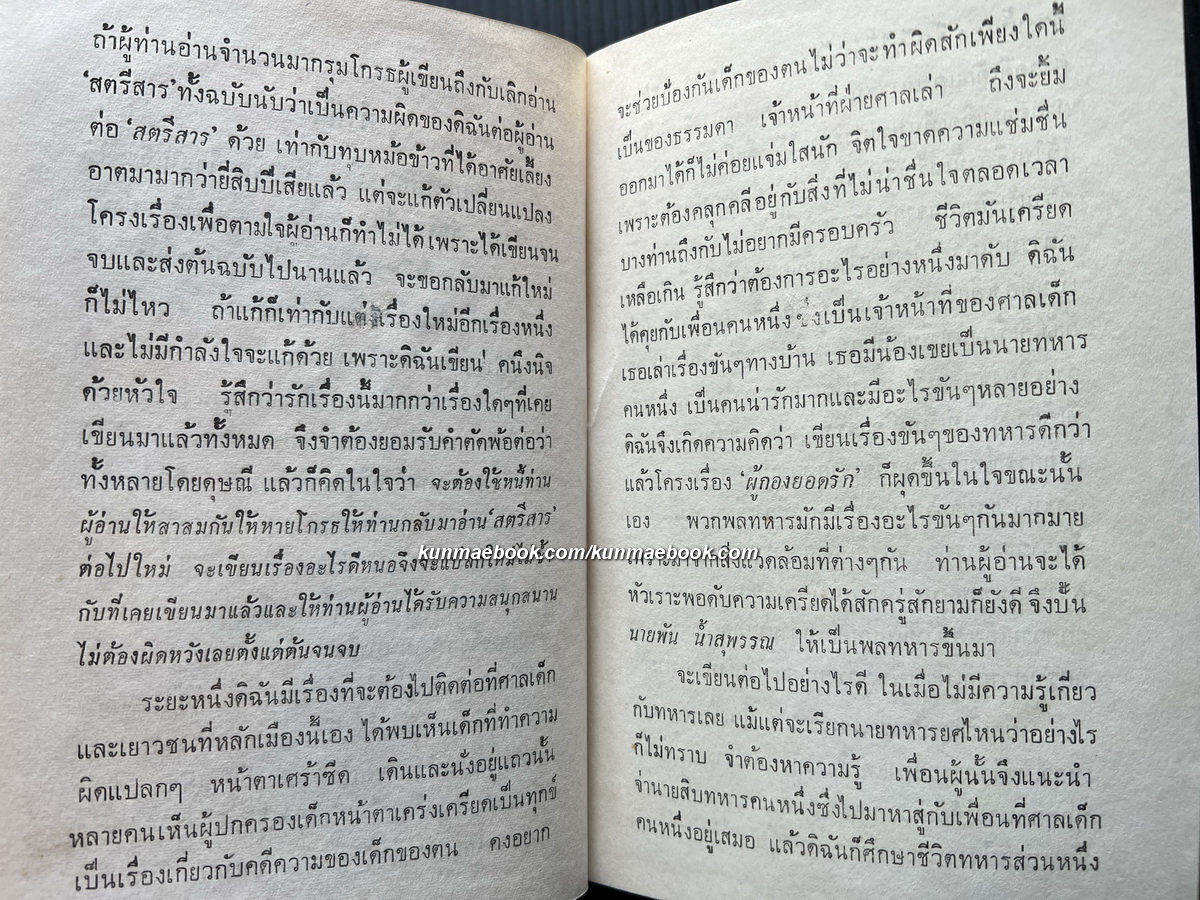 ถ้าผู้ท่านอ่านจำนวนมากรุมโกรธผู้เขียนถึงกับเลิกอ่าน
‘สตรีสาร’ ทั้งฉบับนับว่าเป็นความผิดของดิฉันต่อผู้อ่าน
ต่อ ‘สตรีสาร’ ด้วย เท่ากับทุบหม้อข้าวที่ได้อาศัยเลี้ยง
อาตมามากว่ายี่สิบปีเสียแล้ว แต่จะแก้ตัวเปลี่ยนแปลง
โครงเรื่องเพื่อตามใจผู้อ่านก็ทำไม่ได้ เพราะได้เขียนจน
จบและส่งต้นฉบับไปนานแล้ว จะขอกลับมาแก้ใหม่
ก็ไม่ไหว ถ้าแก้ก็เท่ากับแต่งเรื่องใหม่อีกเรื่องหนึ่ง
และไม่มีกำลังใจจะแก้ด้วย เพราะดิฉันเขียน คนึงนิจ
ด้วยหัวใจ รู้สึกว่ารักเรื่องนี้มากกว่าเรื่องใดๆที่เคย
เขียนมาแล้วทั้งหมด จึงจำต้องยอมรับคำตัดพ้อต่อว่า
ทั้งหลายโดยดุษณี แล้วก็คิดในใจว่า จะต้องใช้หนี้ท่าน
ผู้อ่านให้สาสมกันให้หายโกรธให้ท่านกลับมาอ่าน ‘สตรีสาร’
ต่อไปใหม่ จะเขียนเรื่องอะไรดีหนอจึงจะแปลกใหม่ไม่ซ้ำ
กับที่เคยเขียนมาแล้วและให้ท่านผู้อ่านได้รับความสนุกสนาน
ไม่ต้องผิดหวังเลยตั้งแต่ต้นจนจบ
ระยะหนึ่งดิฉันมีเรื่องที่จะต้องไปติดต่อที่ศาลเด็ก
และเยาวชนที่หลักเมืองนี้เอง ได้พบเห็นเด็กที่ทำความ
ผิดแปลกๆ หน้าตาเศร้าซีด เดินและนั่งอยู่แถวนั้น
หลายคนเห็นผู้ปกครองเด็กหน้าตาเคร่งเครียดเป็นทุกข์
เป็นเรื่องเกี่ยวกับคดีความของเด็กของตน คงอยาก
จะช่วยป้องกันเด็กของตน ไม่ว่าจะทำผิดสักเพียงใดนี้
เป็นของธรรมดา เจ้าหน้าที่ฝ่ายศาลเล่า ถึงจะยิ้ม
ออกมาได้ก็ไม่ค่อยแจ่มใสนัก จิตใจขาดความแช่มชื่น
เพราะต้องคลุกคลีอยู่กับสิ่งที่ไม่น่าชื่นใจตลอดเวลา
บางท่านถึงกับไม่อยากมีครอบครัว ชีวิตมันเครียด
เหลือเกิน รู้สึกว่าต้องการอะไรอย่างหนึ่งมาดับ ดิฉัน
ได้คุยกับเพื่อนคนหนึ่งซึ่งเป็นเจ้าหน้าที่ของศาลเด็ก
เธอเล่าเรื่องขันๆทางบ้าน เธอมีน้องเขยเป็นนายทหาร
คนหนึ่ง เป็นคนน่ารักมากและมีอะไรขันๆหลายอย่าง
ดิฉันจึงเกิดความคิดว่า เขียนเรื่องขันๆของทหารดีกว่า
แล้วโครงเรื่อง ‘ผู้กองยอดรัก’ ก็ผุดขึ้นในใจขณะนั้น
เอง พวกพลทหารมักมีเรื่องอะไรขันๆกันมากมาย
kunmaebook.com/kunmaebook.com
เพราะมาจากสิ่งแวดล้อมที่ต่างๆกัน ท่านผู้อ่านจะได้
หัวเราะพอดับความเครียดได้สักครู่สักยามก็ยังดี จึงปั้น
นายพัน น้ำสุพรรณ ให้เป็นพลทหารขึ้นมา
จะเขียนต่อไปอย่างไรดี ในเมื่อไม่มีความรู้เกี่ยว
กับทหารเลย แม้แต่จะเรียกนายทหารยศไหนว่าอย่างไร
ก็ไม่ทราบ จำต้องหาความรู้ เพื่อนผู้นั้นจึงแนะนำ
จ่านายสิบทหารคนหนึ่งซึ่งไปมาหาสู่กับเพื่อนที่ศาลเด็ก
คนหนึ่งอยู่เสมอ แล้วดิฉันก็ศึกษาชีวิตทหารส่วนหนึ่ง